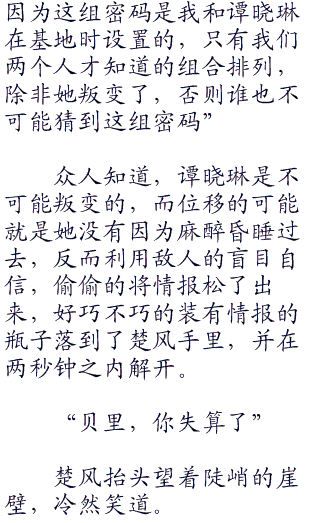 因为这组密码是我和谭晓琳
在基地时设置的，只有我们
两个人才知道的组合排列，
除非她叛变了，否则谁也不
可能猜到这组密码”
众人知道，谭晓琳是不
可能叛变的，而位移的可能
就是她没有因为麻醉昏睡过
去，反而利用敌人的盲目自
信，偷偷的将情报松了出
来，好巧不巧的装有情报的
瓶子落到了楚风手里，并在
两秒钟之内解开。
“贝里，你失算了”
楚风抬头望着陡峭的崖
壁，冷然笑道。